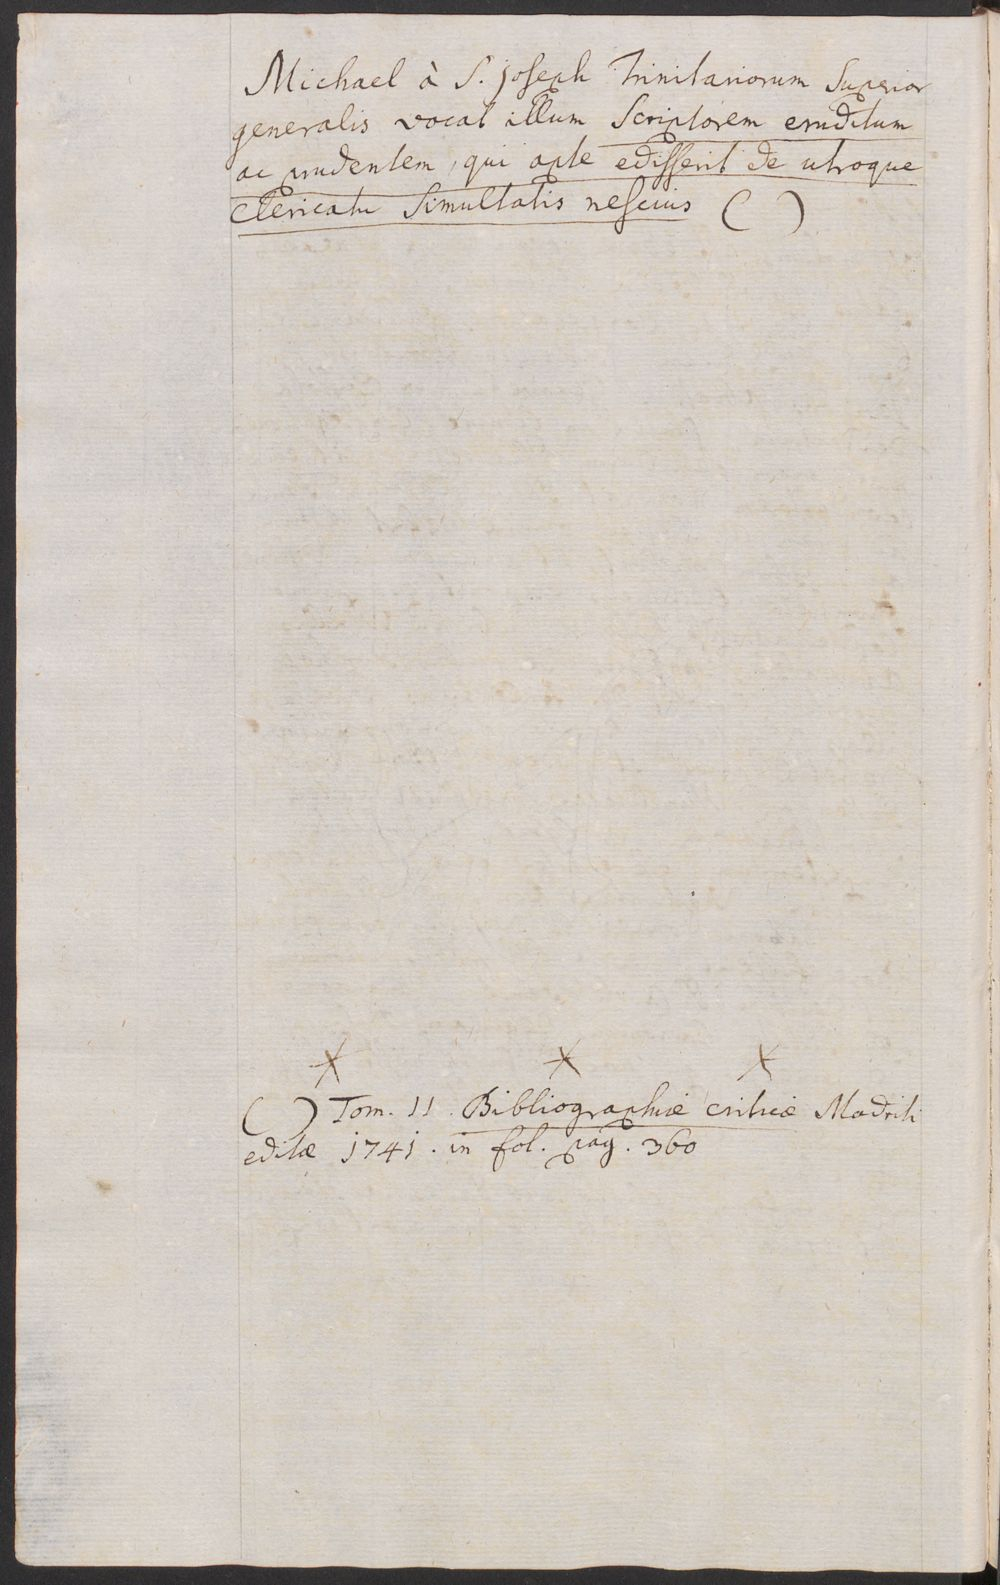 Michael à S. Joseph Trinitariorum Superior
generalis vocat illum Scriptorem eruditum
ac prudentem, qui apte edisserit de utroque
clericatu simultatis nescius ( )
( ) Tom. II. Bibliographiæ criticæ Madriti
editæ 1741. in fol. pag. 360